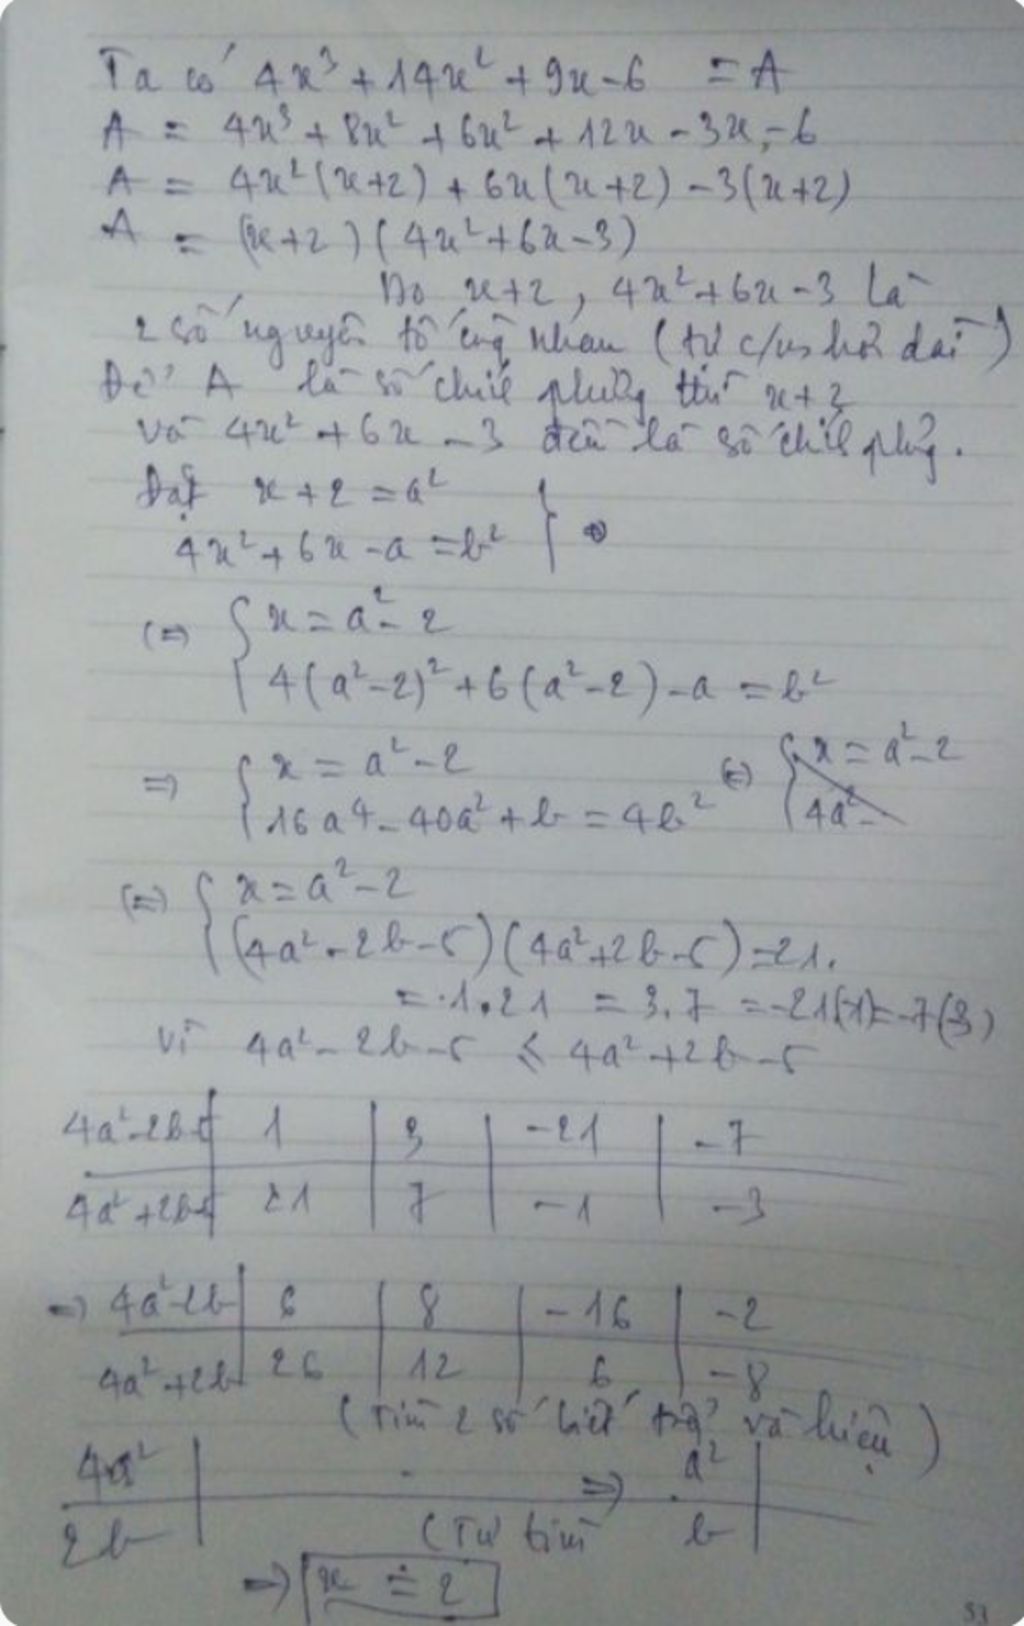 Ta có 4x³ + 14x² + 9x - 6 = A
A = 4x³ + 8x² + 6x² + 12x - 3x - 6
A = 4x²(x+2) + 6x(x+2) - 3(x+2)
A = (x+2)(4x²+6x-3)
Do x+2, 4x²+6x-3 là
2 số nguyên tố cùng nhau (tự c/m hơi dài)
Để A là số chính phương thì x+2
và 4x² + 6x - 3 đều là số chính phương.
Đặt x + 2 = a²
4x² + 6x - a = b² }
(=) { x = a² - 2
4(a²-2)² + 6(a²-2) - a = b²
=> { x = a² - 2 (=) { x = a² - 2
16a4 - 40a² + b = 4b² 4a² -
(=) { x = a² - 2
(4a² - 2b - 5)(4a² + 2b - 5) = 21.
= 1.21 = 3.7 = -21(-1) = -7(-3)
Vì 4a² - 2b - 5 ≤ 4a² + 2b - 5
4a² - 2b - 5 | 1 | 3 | -21 | -7
4a² + 2b - 5 | 21 | 7 | -1 | -3
=> 4a² - 2b | 6 | 8 | -16 | -2
4a² + 2b | 26 | 12 | 6 | -8
(Tìm 2 số biết tổng và hiệu)
4a² | => a² |
2b | (Tự tìm b |
=> x = 2